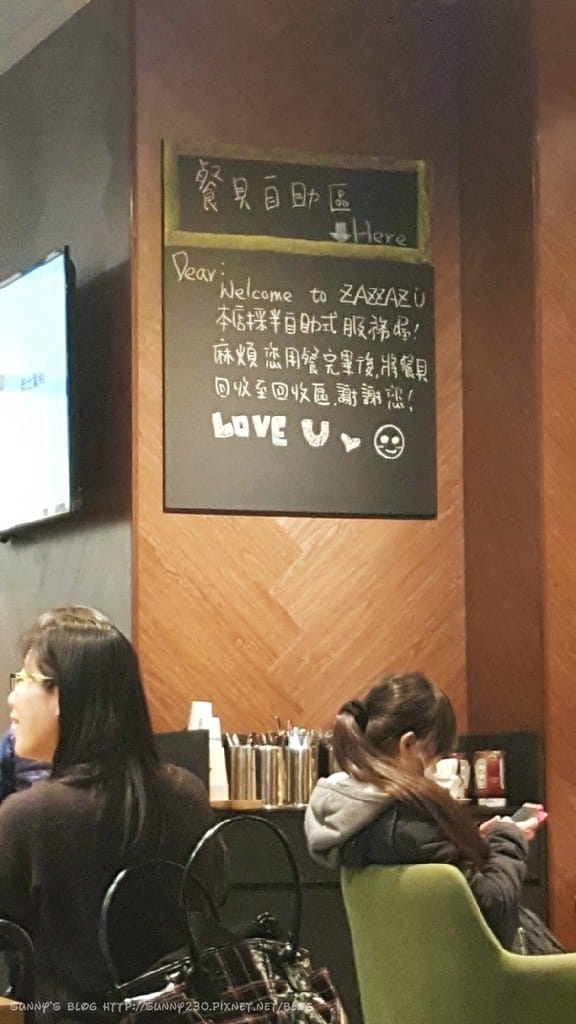 餐具自助區
⬇Here
Dear:
Welcome to ZAZZAZU
本店採半自助式服務喔!
麻煩您用餐完畢後,將餐具
回收至回收區,謝謝您!
LOVE U ♥ ☺
SUNNY'S BLOG HTTP://SUNNY230.PIXNET.NET/BLOG